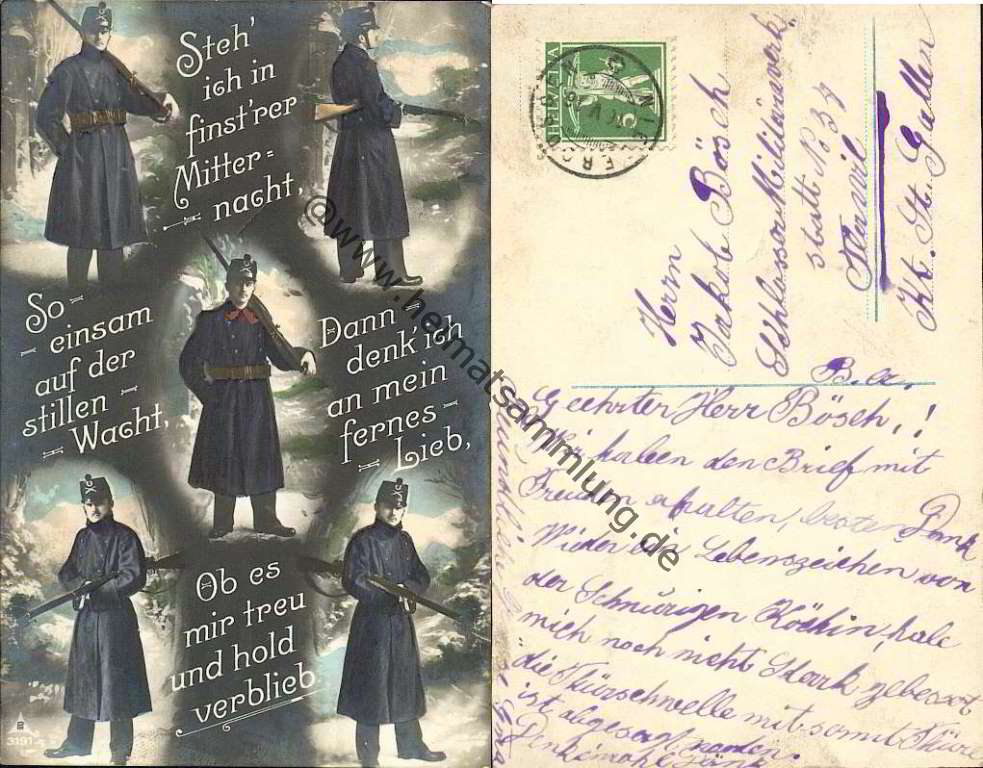 Steh'
ich in
finst'rer
Mitter=
nacht,
So
einsam
auf der
stillen
Wacht,
Dann
denk' ich
an mein
fernes
Lieb,
Ob es
mir treu
und hold
verblieb.
3191
@www.heimatsammlung.de
HELVETIA
Herrn
Jakob Bösch
Schlosser Militärwerk
statt No 37
Flawil
Kt. St. Gallen
B. a.
Geehrter Herr Bösch,!
Wir haben den Brief mit
Freuden erhalten, besten Dank
Wider ein Lebenszeichen von
der Schnürigen Köchin, habe
mich noch nicht Stark gebessert,
die Thürschwelle mit samt Thüre
ist abgesagt worden.